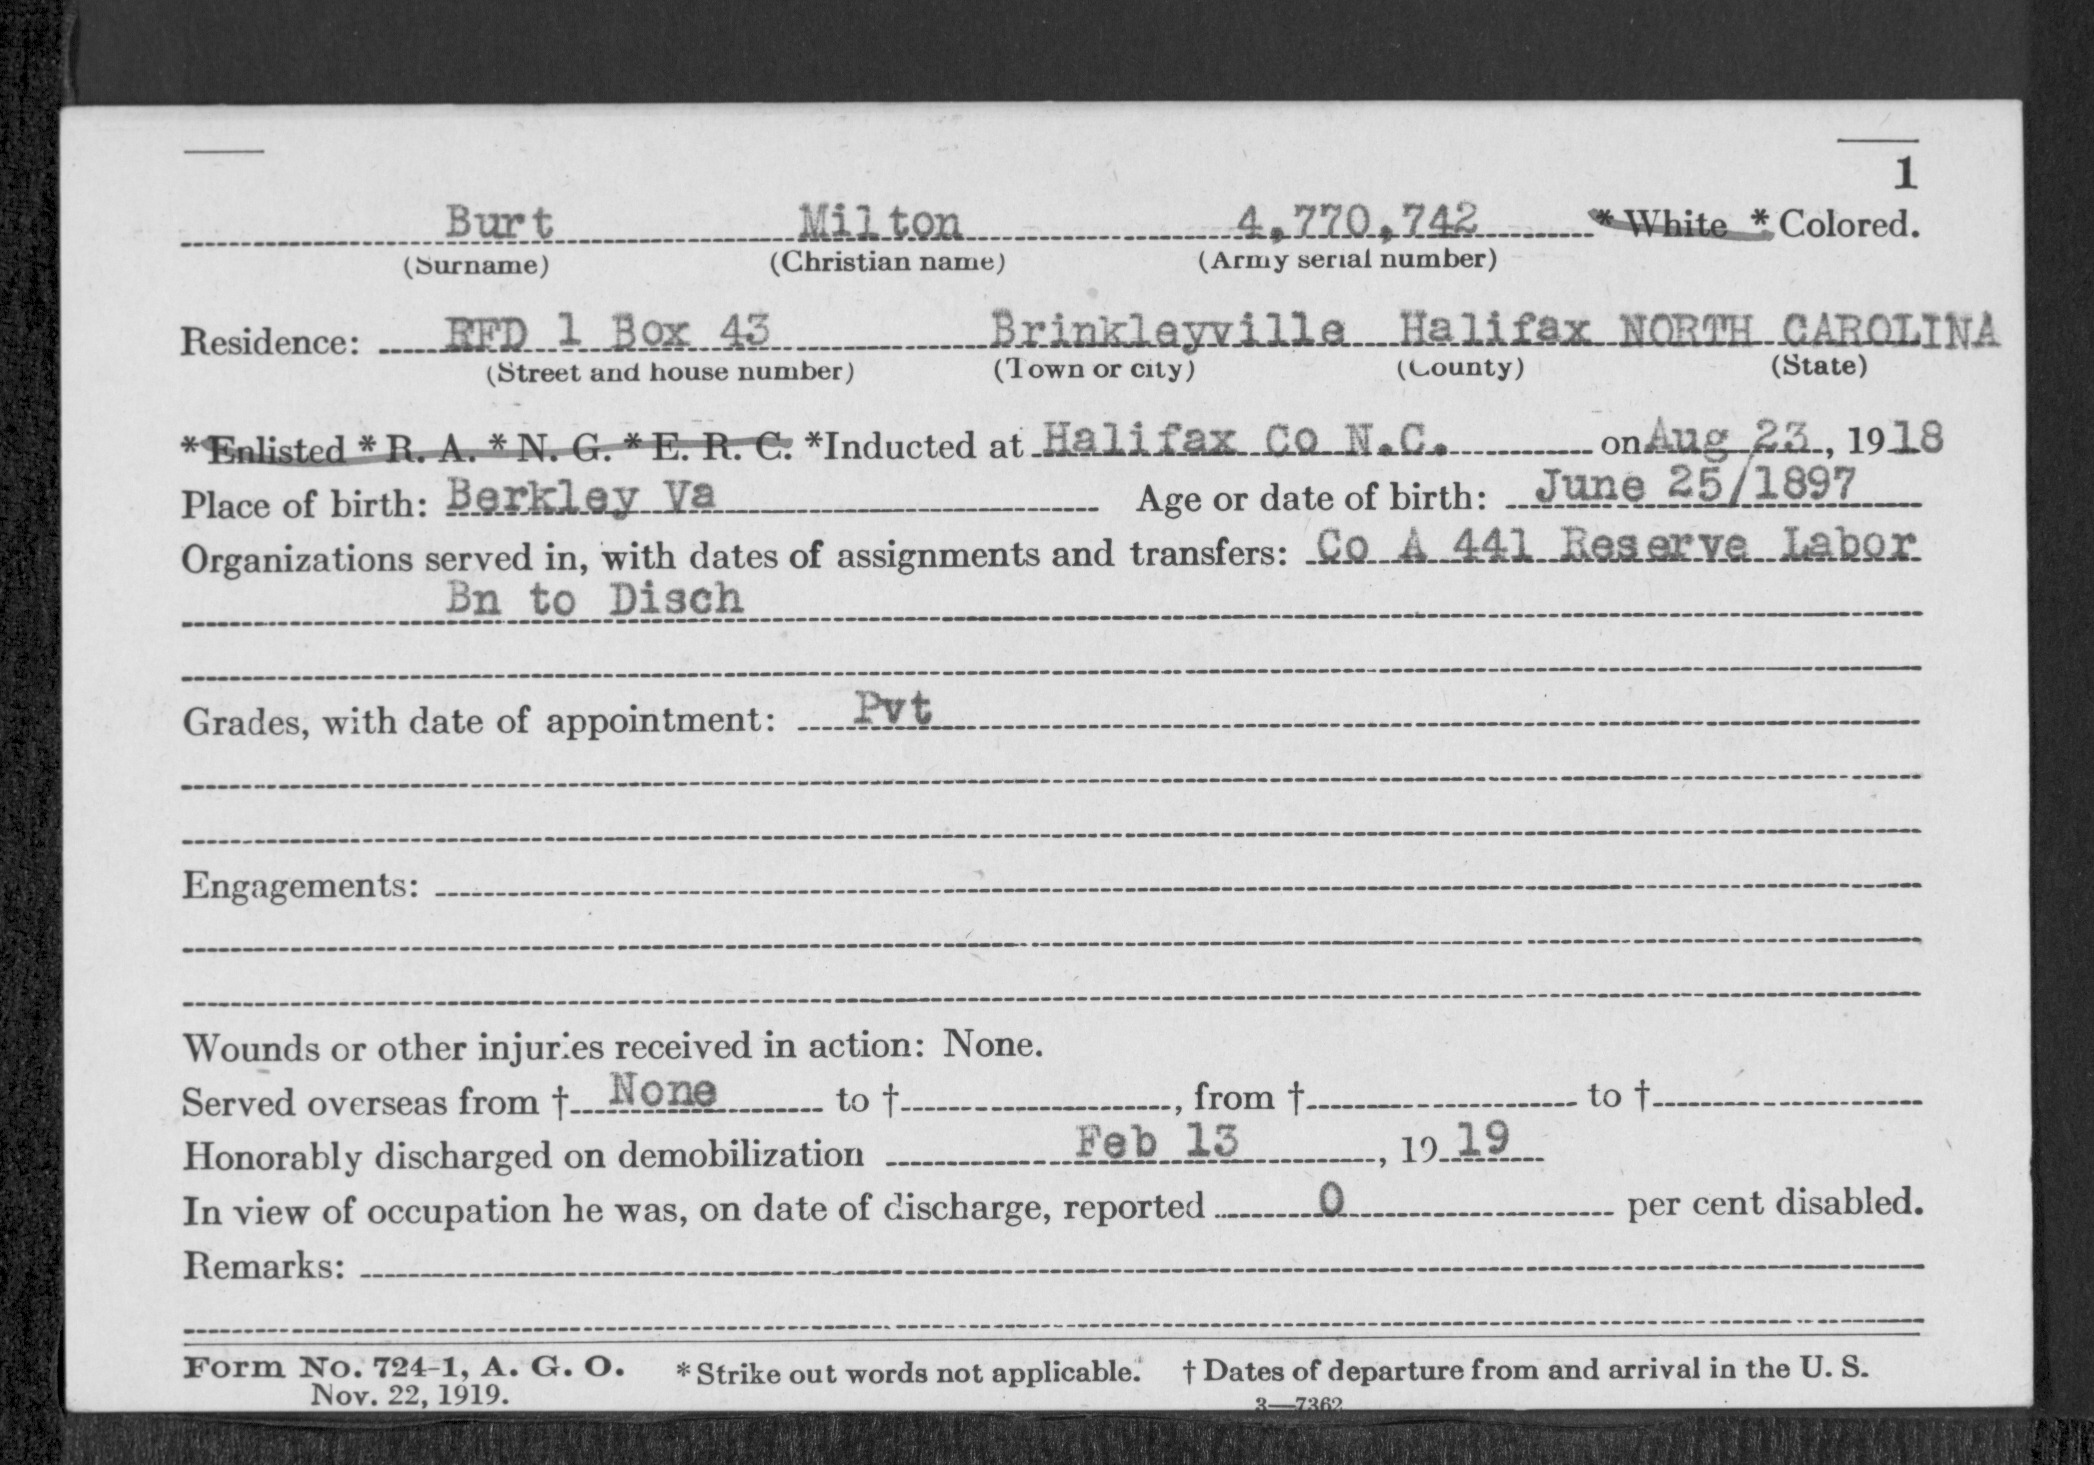 1
Burt Milton 4,770,742 * White * Colored.
(Surname) (Christian name) (Army serial number)
Residence: RFD 1 Box 43 Brinkleyville Halifax NORTH CAROLINA
(Street and house number) (Town or city) (County) (State)
* Enlisted * R. A. * N. G. * E. R. C. *Inducted at Halifax Co N.C. on Aug 23, 1918
Place of birth: Berkley Va Age or date of birth: June 25/1897
Organizations served in, with dates of assignments and transfers: Co A 441 Reserve Labor
Bn to Disch
Grades, with date of appointment: Pvt
Engagements:
Wounds or other injuries received in action: None.
Served overseas from † None to †, from † to †
Honorably discharged on demobilization Feb 13, 1919
In view of occupation he was, on date of discharge, reported 0 per cent disabled.
Remarks:
Form No. 724-1, A. G. O. * Strike out words not applicable. † Dates of departure from and arrival in the U. S.
Nov. 22, 1919. 3—7362